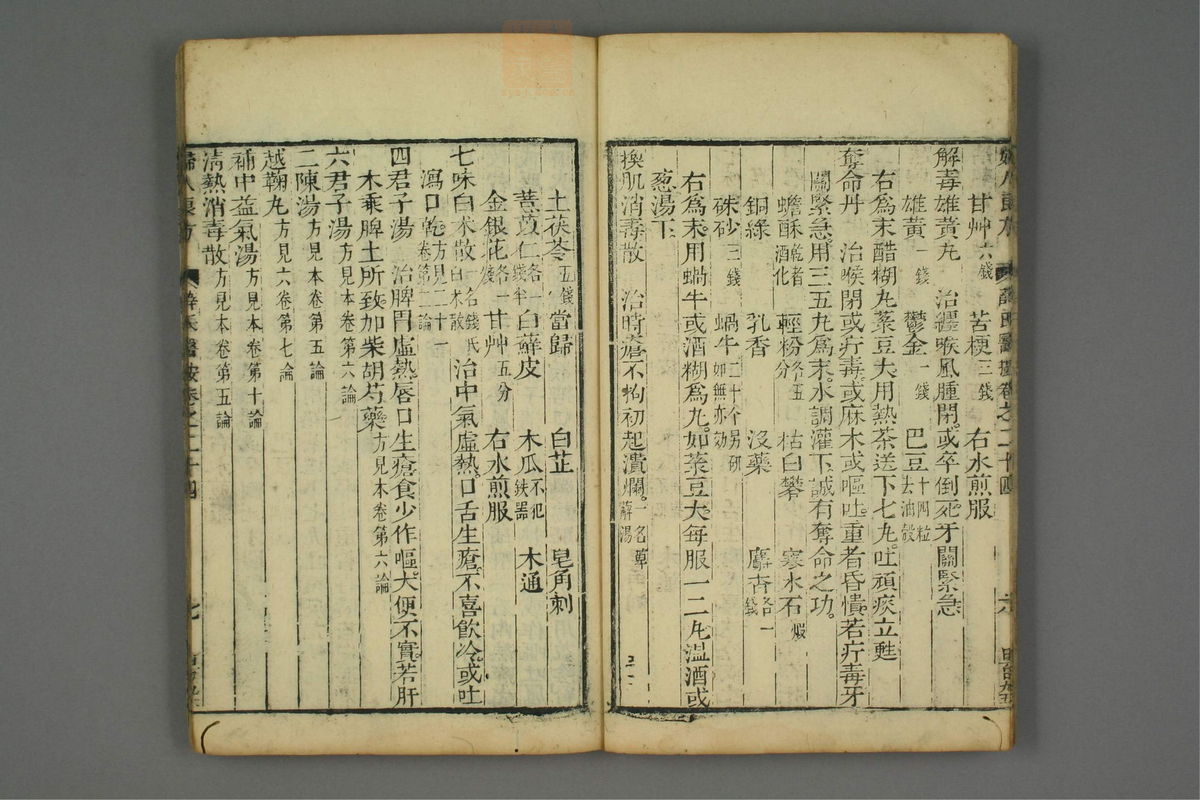 甘艸六錢　苦梗三錢　右水煎服
解毒雄黃丸　治纏喉風腫閉。或卒倒死。牙關緊急
雄黃一錢　鬱金一錢　巴豆十四粒去油殼
右爲末醋糊丸菉豆大。用熱茶送下七丸。吐頑痰立甦
奪命丹　治喉閉或疔毒。或麻木或嘔吐。重者昏憒。若疔毒牙
關緊急。用三五丸爲末。水調灌下。誠有奪命之功。
蟾酥乾者酒化　輕粉各五分　枯白礬　寒水石煅
銅綠　乳香　沒藥　麝香各一錢
硃砂三錢　蝸牛二十个另研如無亦効
右爲末。用蝸牛或酒糊爲丸。如菉豆大。每服一二丸。溫酒或
葱湯下
換肌消毒散　治時瘡不拘初起潰爛。一名萆薢湯
土茯苓五錢　當歸　白芷　皂角刺
薏苡仁各一錢半　白蘚皮　木瓜不犯鉄器　木通
金銀花各一錢　甘艸五分　右水煎服
七味白朮散一名錢氏白朮散　治中氣虛熱。口舌生瘡。不喜飲冷。或吐
瀉口乾方見二十一卷第二論
四君子湯　治脾胃虛熱。唇口生瘡。食少作嘔。大便不實。若肝
木乘脾土所致加柴胡芍藥方見本卷第六論
六君子湯方見本卷第六論
二陳湯方見本卷第五論
越鞠丸方見六卷第七論
補中益氣湯方見本卷第十論
清熱消毒散方見本卷第五論
婦人良方　薛氏醫按卷之二十四　七